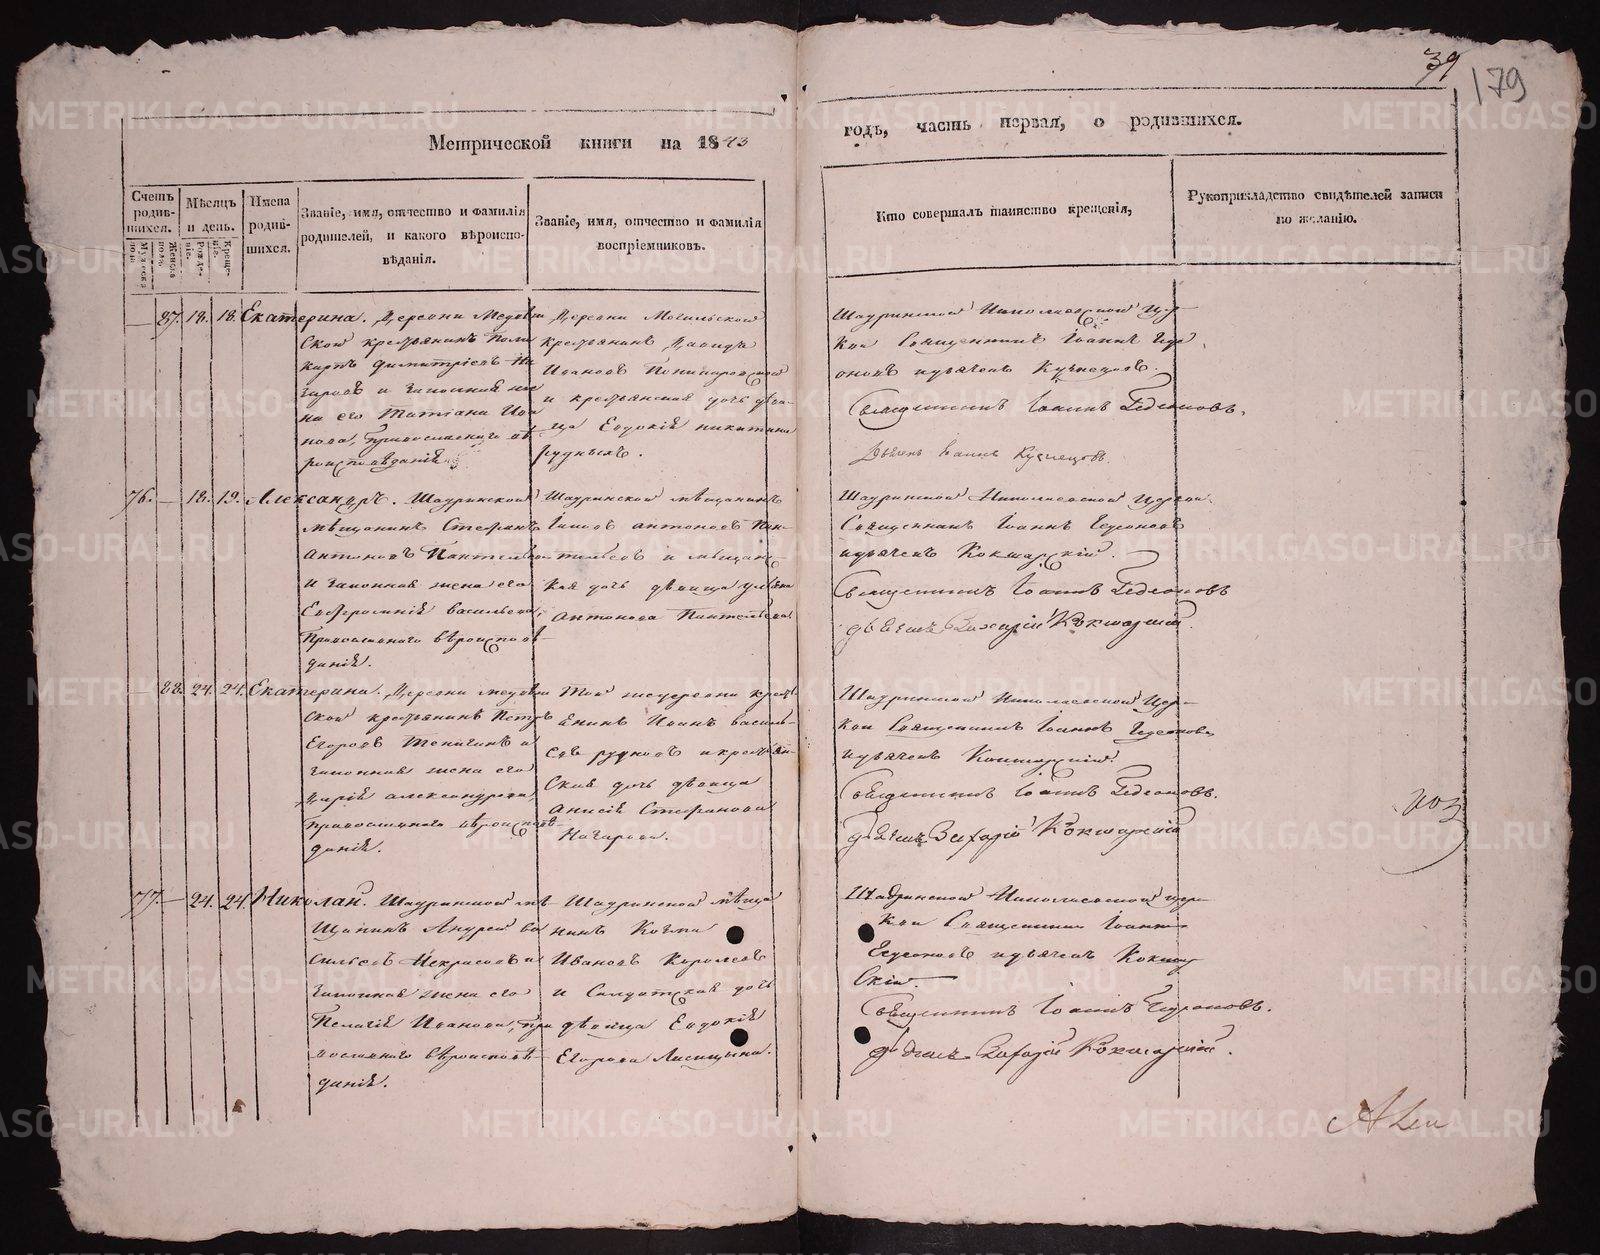 39
179
Метрической книги на 1843
годъ, часть первая, о родившихся.
Счетъ родив-
шихся.
Мужеска пола.
Женска пола.
Мѣсяцъ
и день.
Рожде-
нія.
Креще-
нія.
Имена
родив-
шихся.
Званіе, имя, отчество и фамилія
родителей, и какого вѣроиспо-
вѣданія.
Званіе, имя, отчество и фамилія
воспріемниковъ.
Кто совершалъ таинство крещенія,
Рукоприкладство свидѣтелей записи
по желанію.
— 87. 18. 18. Екатерина.
Деревни
ской крестьянинъ Поли
карпъ Димитріевъ
и законная же
на его Татіана Ива
нова, православнаго вѣ
роисповѣданія
Деревни Могильской
крестьянинъ Давидъ
Ивановъ
и крестьянская дочь дѣви-
ца Евдокія Никитина
Рудныхъ.
Шадринской Николаевской Цер-
кви Священникъ Іоаннъ Геде
оновъ и дьячекъ Кузнецовъ.
Священникъ Іоаннъ Гедеоновъ.
Дьячекъ Іоаннъ Кузнецовъ.
76. — 18. 19. Александръ.
Шадринской
мѣщанинъ Стефанъ
Антоновъ Пантелѣевъ
и законная жена его
Евфросинія Васильева,
Православнаго вѣроисповѣ-
данія.
Шадринской мѣщанинъ
Антоновъ Пан-
телѣевъ и мѣщанс-
кая дочь дѣвица
Антонова Пантелѣева
Шадринской Николаевской Церкви
Священникъ Іоаннъ Гедеоновъ
и дьячекъ Кокшарскій.
Священникъ Іоаннъ Гедеоновъ
дьячекъ Захарій Кокшарскій.
— 88. 24. 24. Екатерина.
Деревни
ской крестьянинъ Петръ
Егоровъ
законная жена его
Дарія Александрова,
Православнаго вѣроисповѣ-
данія.
Той же деревни крест
янинъ Иванъ Василь-
евъ Рудновъ и крестьян-
ская дочь дѣвица
Анисія Стефанова
Шадринской Николаевской Цер-
кви Священникъ Іоаннъ Гедеоновъ
и дьячекъ Кокшарскій.
Священникъ Іоаннъ Гедеоновъ.
дьячекъ Захарій Кокшарскій
77. — 24. 24. Николай.
Шадринской мѣ-
щанинъ Андрей Ва
сильевъ Некрасовъ и
законная жена его
Пелагія Иванова, пра
вославнаго вѣроисповѣ-
данія.
Шадринской мѣща
нинъ Козма
Ивановъ Королевъ
и Солдатская дочь
дѣвица Евдокія
Егорова Лисицына.
Шадринской Николаевской цер-
кви Священникъ Іоаннъ
Гедеоновъ и дьячекъ Кокшар
скій.
Священникъ Іоаннъ Гедеоновъ.
дьячекъ Захарій Кокшарскій.
METRIKI.GASO-URAL.RU